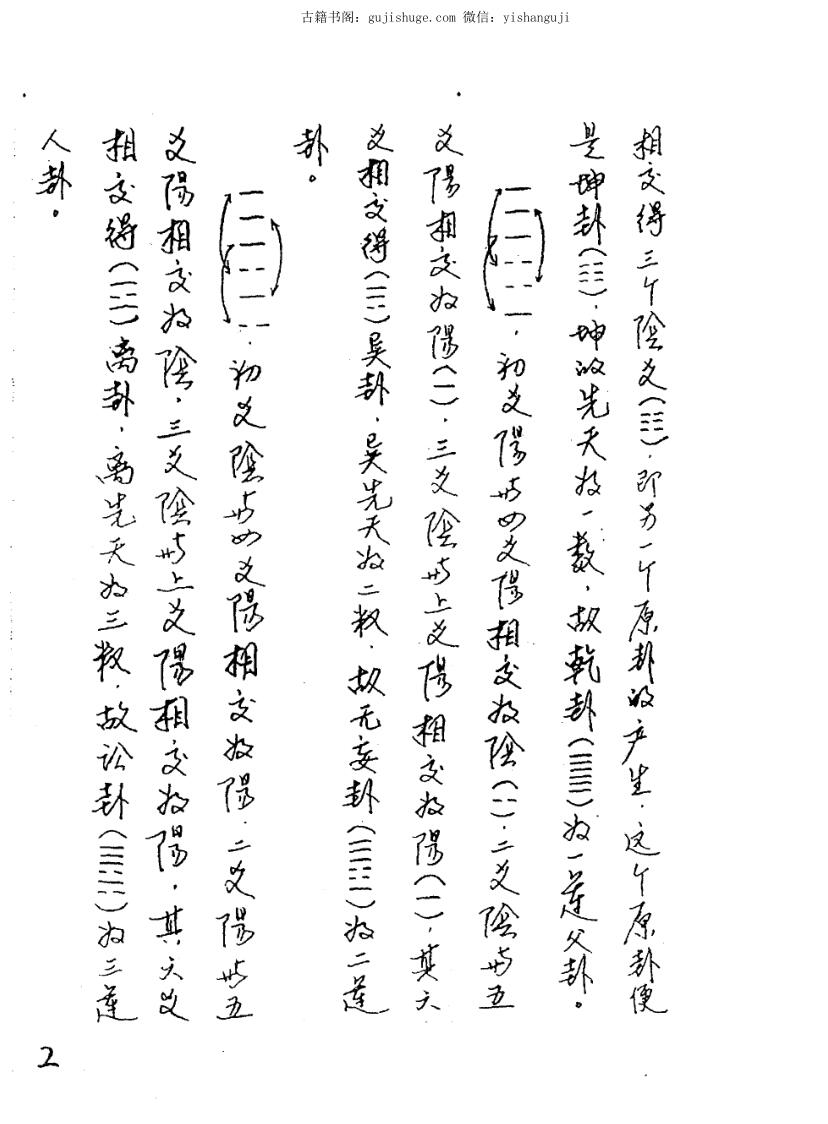 古籍书阁：gujishuge.com 微信：yishanguji
相交得三个陰爻(☷)，即另一个原卦的产生，这个原卦便
是坤卦(☷)，坤的先天为一数，故乾卦(䷀)为一運父卦。
，初爻陽与四爻陽相交为陰(⚋)，二爻陰与五
爻陽相交为陽(⚊)，三爻陰与上爻陽相交为陽(⚊)，其六
爻相交得(☴)巽卦，巽先天为二数，故无妄卦(䷘)为二運
卦。
，初爻陰与四爻陽相交为陽，二爻陽与五
爻陽相交为陰，三爻陰与上爻陽相交为陽，其六爻
相交得(☲)离卦，离先天为三数，故讼卦(䷅)为三運
人卦。
2